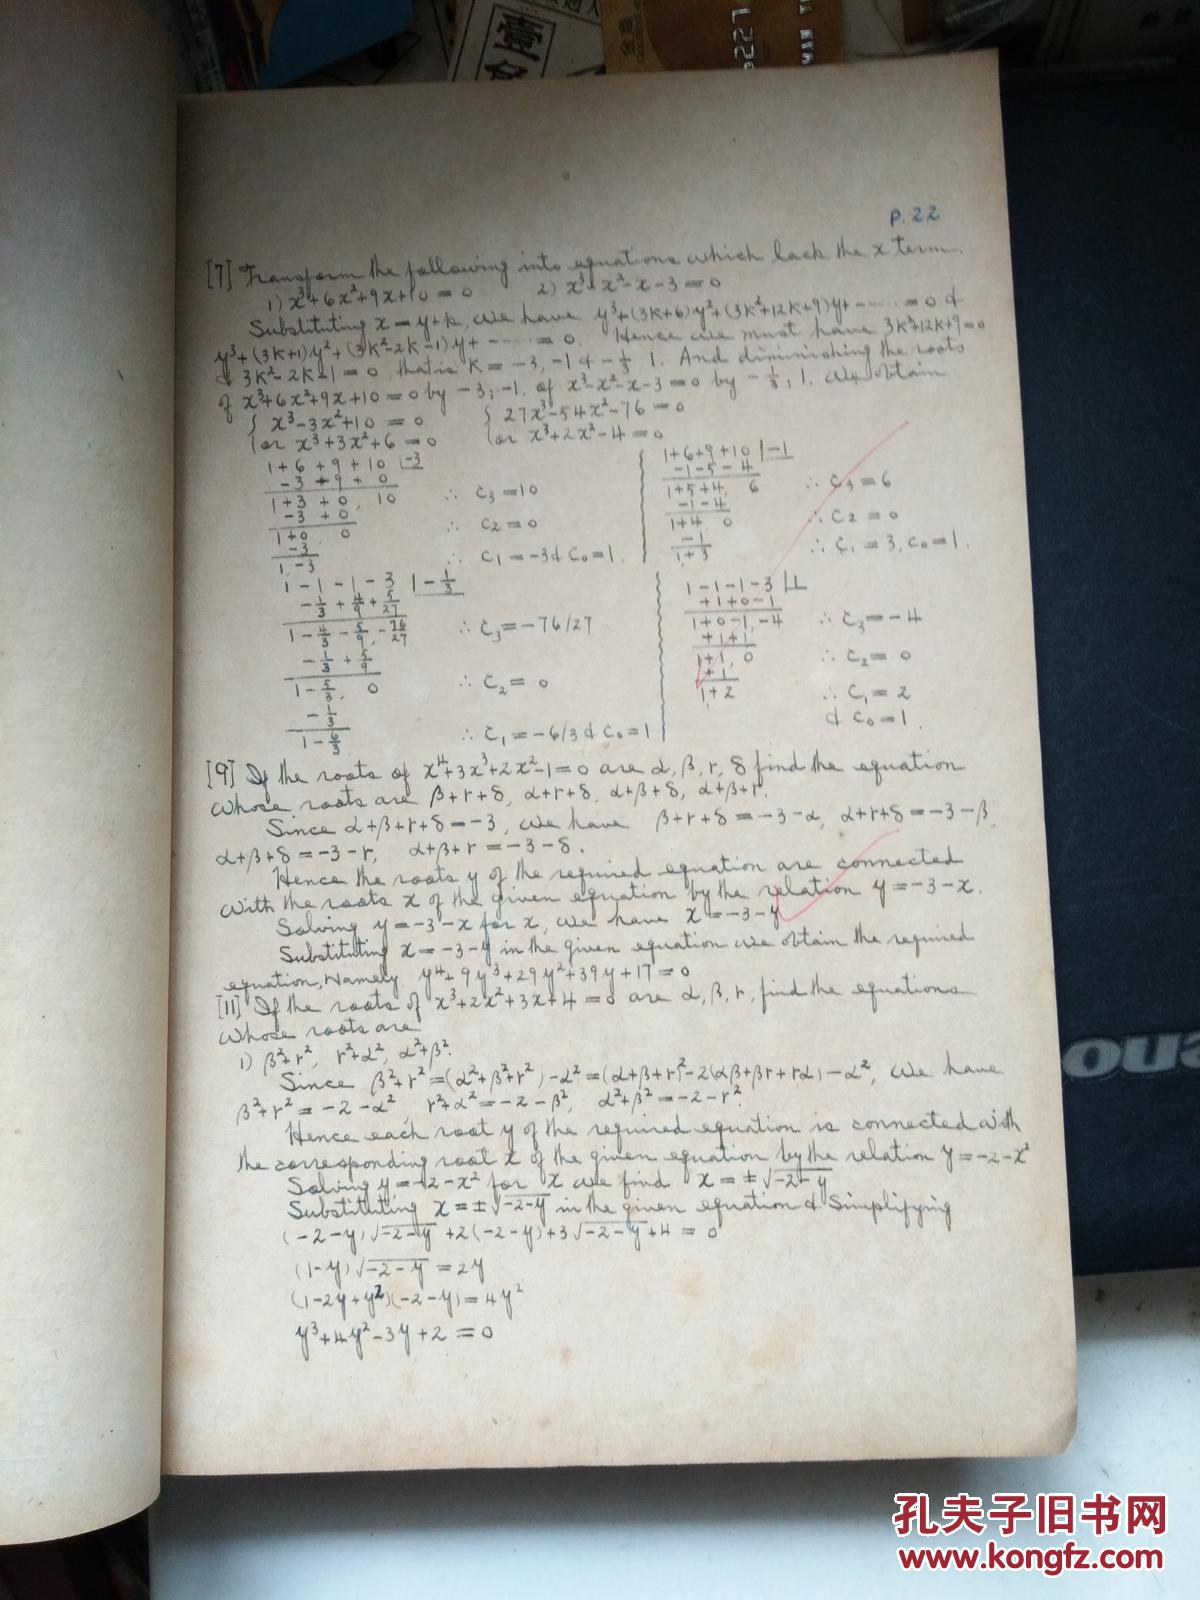 壹
金燕
5227
P. 22
[7] Transform the following into equations which lack the x term.
1) x³+6x²+9x+10=0 2) x³-x²-x-3=0
Substituting x=y+k, we have y³+(3k+6)y²+(3k²+12k+9)y+-----=0 &
y³+(3k+1)y²+(3k²-2k-1)y+-----=0. Hence we must have 3k²+12k+9=0
& 3k²-2k-1=0 that is k=-3, -1 & -1/3 1. And diminishing the roots
of x³+6x²+9x+10=0 by -3; -1. of x³-x²-x-3=0 by -1/3; 1. we obtain
{ x³-3x²+10=0 { 27x³-54x²-76=0
or x³+3x²+6=0 or x³+2x²-4=0
1+6+9+10 |-3
-3+9+0
1+3+0, 10 ∴ C₃=10
-3+0
1+0 0 ∴ C₂=0
-3
1,-3 ∴ C₁=-3 & C₀=1.
1+6+9+10 |-1
-1-5-4
1+5+4, 6 ∴ C₃=6
-1-4
1+4 0 ∴ C₂=0
-1
1,+3 ∴ C₁=3, C₀=1.
1-1-1-3 |-1/3
-1/3+4/9+5/27
1-4/3-5/9,-76/27 ∴ C₃=-76/27
-1/3+5/9
1-5/3, 0 ∴ C₂=0
-1/3
1-6/3 ∴ C₁=-6/3 & C₀=1
1-1-1-3 |1
+1+0-1
1+0-1,-4 ∴ C₃=-4
+1+1
1+1, 0 ∴ C₂=0
+1
1,+2 ∴ C₁=2
& C₀=1.
[9] If the roots of x⁴+3x³+2x²-1=0 are α, β, r, δ find the equation
whose roots are β+r+δ, α+r+δ, α+β+δ, α+β+r.
Since α+β+r+δ=-3, we have β+r+δ=-3-α, α+r+δ=-3-β,
α+β+δ=-3-r, α+β+r=-3-δ.
Hence the roots y of the required equation are connected
with the roots x of the given equation by the relation y=-3-x.
Solving y=-3-x for x, we have x=-3-y
Substituting x=-3-y in the given equation we obtain the required
equation, Namely y⁴+9y³+29y²+39y+17=0
[11] If the roots of x³+2x²+3x+4=0 are α, β, r, find the equations
whose roots are
1) β²+r², r²+α², α²+β².
Since β²+r²=(α²+β²+r²)-α²=(α+β+r)²-2(αβ+βr+rα)-α², we have
β²+r²=-2-α², r²+α²=-2-β², α²+β²=-2-r².
Hence each root y of the required equation is connected with
the corresponding root x of the given equation by the relation y=-2-x²
Solving y=-2-x² for x we find x=±√-2-y
Substituting x=±√-2-y in the given equation & Simplifying
(-2-y)√-2-y+2(-2-y)+3√-2-y+4=0
(1-y)√-2-y=2y
(1-2y+y²)(-2-y)=4y²
y³+4y²-3y+2=0
孔夫子旧书网
www.kongfz.com